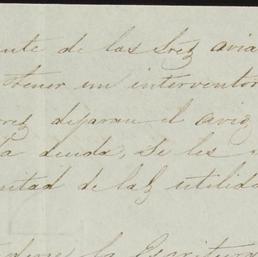 nte de los Srez avia
tener un interventor
rez dejaran el avio
la deuda, se les
mitad de las utilida
la Escritura